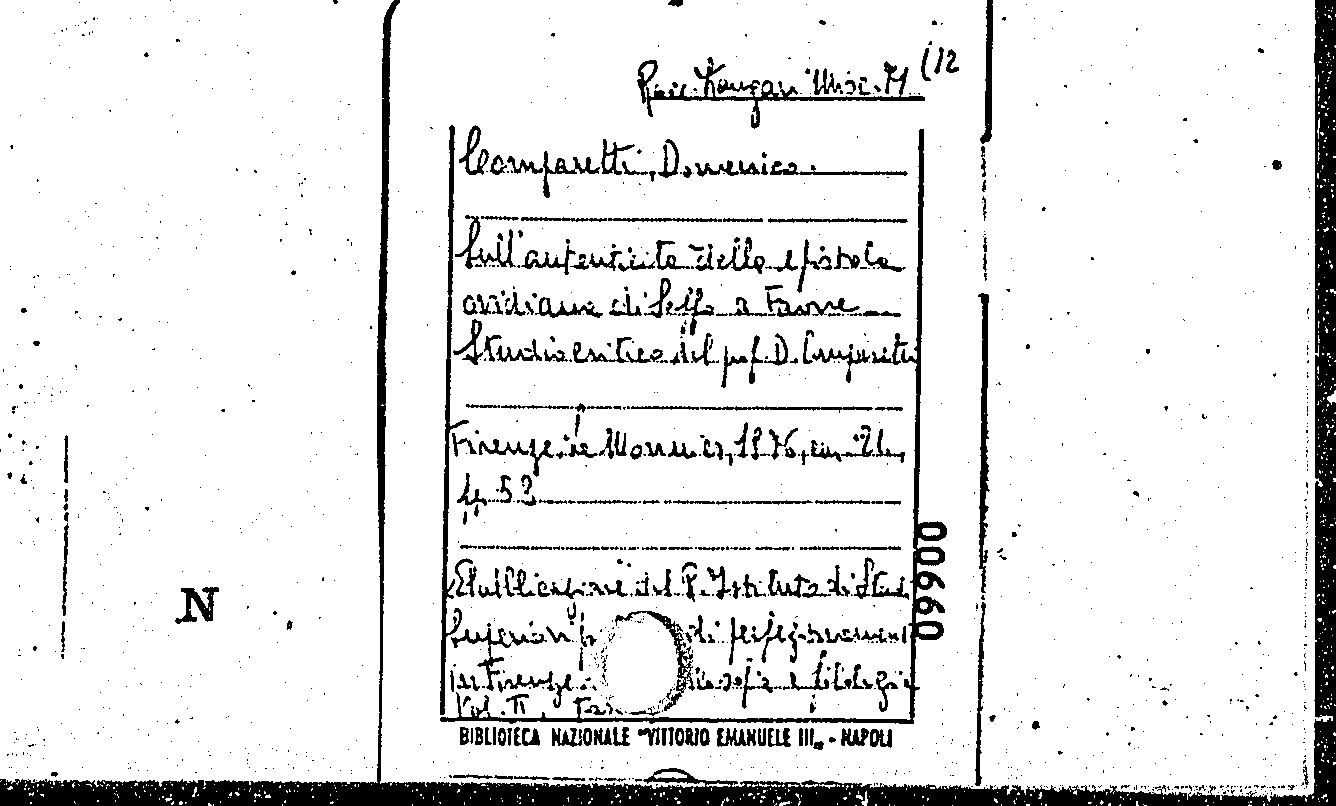 Race. Zangari Misc. M (12
Comparetti, Domenico.
Sull'autenticità della epistola
ovidiana di Saffo a Faone
Studio critico del prof. D. Comparetti
Firenze, Le Monnier, 1876, in
pp. 53
Pubblicazioni del R. Istituto di Stud
Superiori di perfezionament
in Firenze. e filologia
Vol. II, Fas
00660
N
BIBLIOTECA NAZIONALE "VITTORIO EMANUELE III„ - NAPOLI